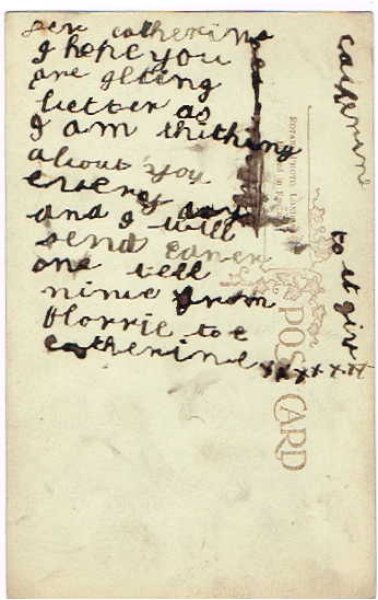 dere catherine
I hope you
are gtting
better as
I am thithing
about you
every day
and I will
send
one tell
ninie from
Florrie to e
catherine xxxxxx
to it giv
POST CARD